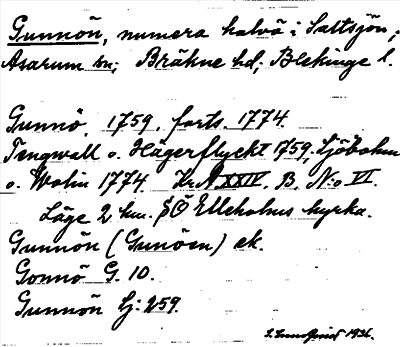 Gunnön, numera halvö i Saltsjön,
Asarum sn; Bräkne hd; Blekinge l.
Gunnö. 1759, forts. 1774.
Tengwall o. Hägerflyckt 1759, Sjöbohm
o. Wolin 1774 Kr.A XXIV. B. No VI.
Läge 2 km. SÖ Elleholms kyrka.
Gunnön (Gunöen) ek.
Gonnö G. 10.
Gunnön Lj: 259.
1936.